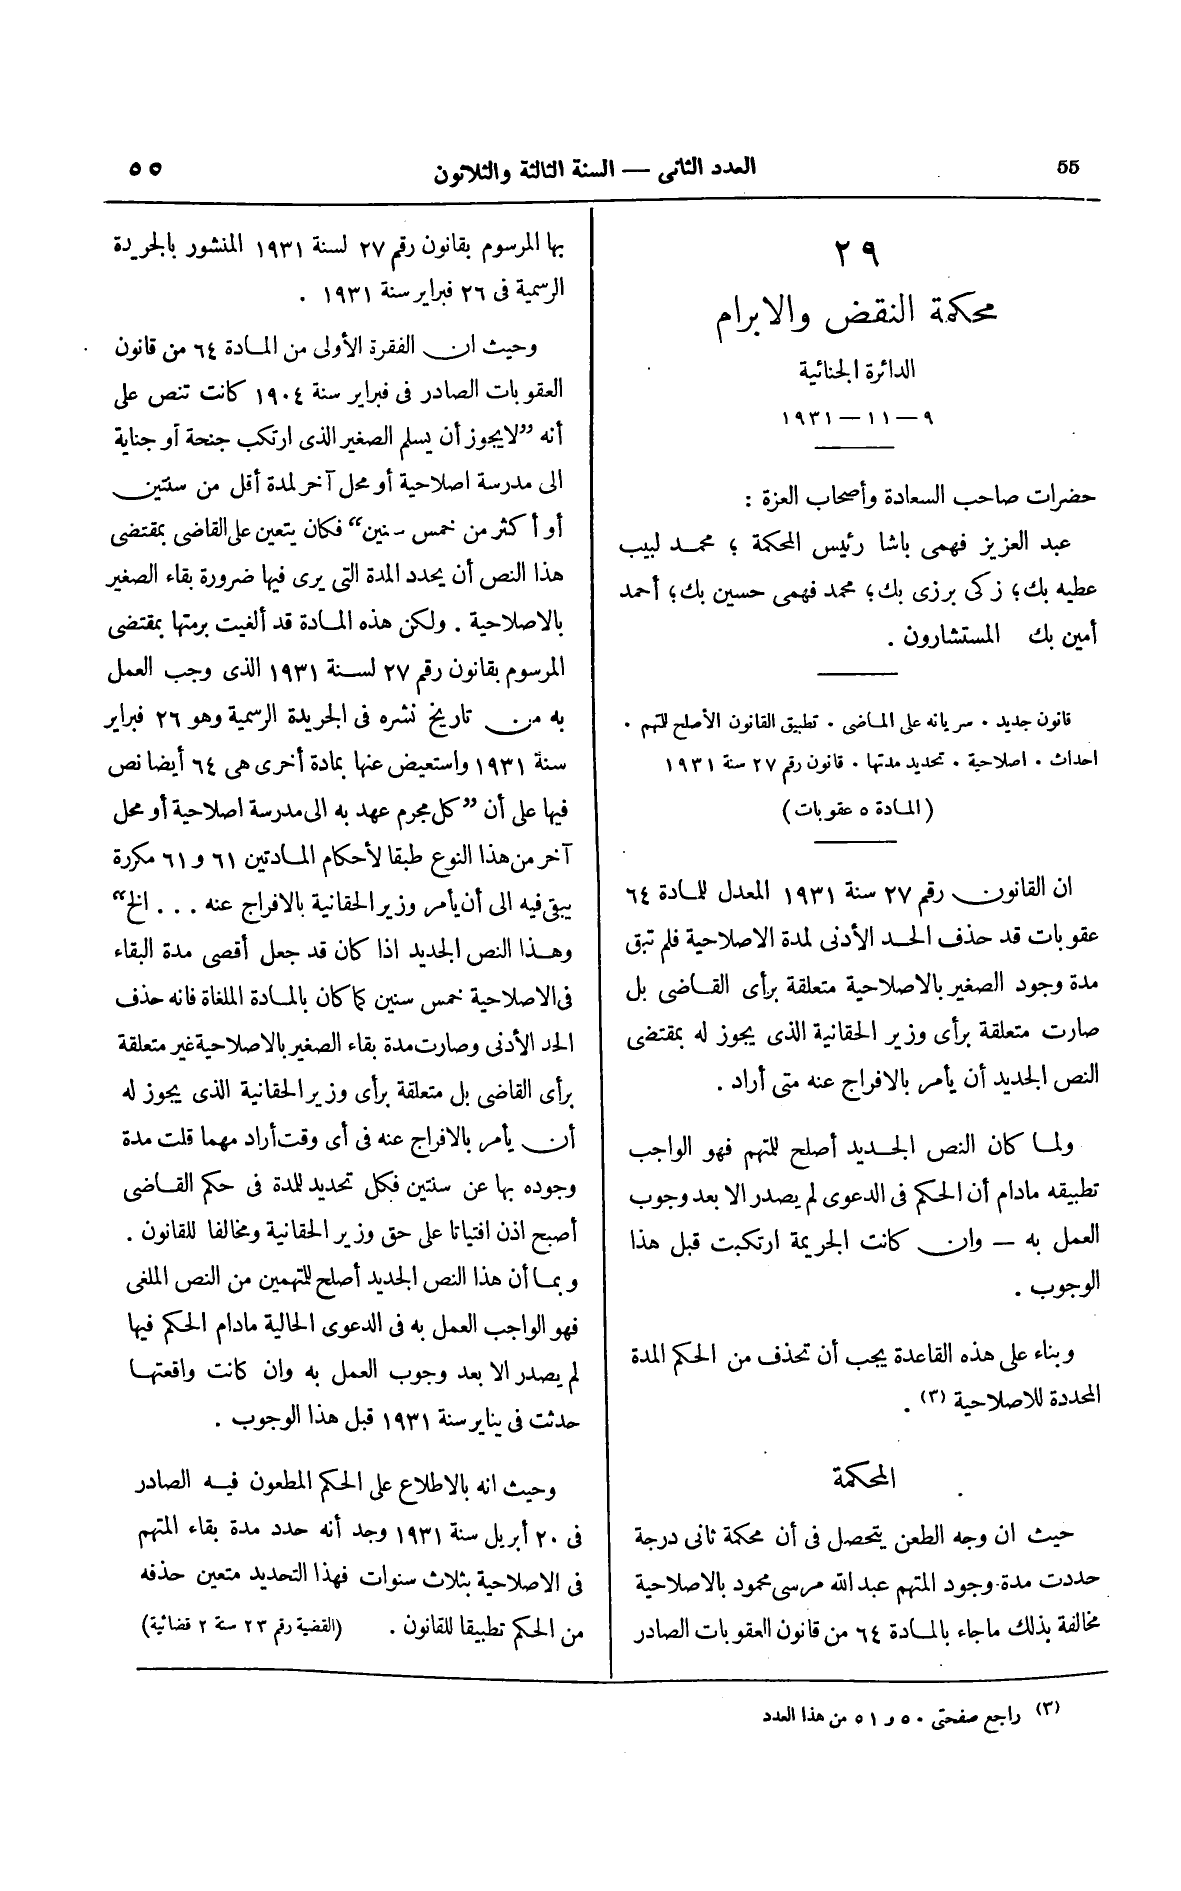 55
العدد الثانى — السنة الثالثة والثلاثون
٥٥
٢٩
محكمة النقض والابرام
الدائرة الجنائية
٩ — ١١ — ١٩٣١
حضرات صاحب السعادة وأصحاب العزة :
عبد العزيز فهمى باشا رئيس المحكمة ؛ محمد لبيب
عطيه بك ؛ زكى برزى بك ؛ محمد فهمى حسين بك ؛ أحمد
أمين بك المستشارون .
قانون جديد . سريانه على الماضى . تطبيق القانون الأصلح للمتهم .
احداث . اصلاحية . تحديد مدتها . قانون رقم ٢٧ سنة ١٩٣١
(المادة ٥ عقوبات)
ان القانون رقم ٢٧ سنة ١٩٣١ المعدل للمادة ٦٤
عقوبات قد حذف الحد الأدنى لمدة الاصلاحية فلم تبق
مدة وجود الصغير بالاصلاحية متعلقة برأى القاضى بل
صارت متعلقة برأى وزير الحقانية الذى يجوز له بمقتضى
النص الجديد أن يأمر بالافراج عنه متى أراد .
ولما كان النص الجديد أصلح للمتهم فهو الواجب
تطبيقه مادام أن الحكم فى الدعوى لم يصدر الا بعد وجوب
العمل به — وان كانت الجريمة ارتكبت قبل هذا
الوجوب .
وبناء على هذه القاعدة يجب أن تحذف من الحكم المدة
المحددة للاصلاحية (٣) .
المحكمة
حيث ان وجه الطعن يتحصل فى أن محكمة ثانى درجة
حددت مدة وجود المتهم عبد الله مرسى محمود بالاصلاحية
مخالفة بذلك ماجاء بالمادة ٦٤ من قانون العقوبات الصادر
بها المرسوم بقانون رقم ٢٧ لسنة ١٩٣١ المنشور بالجريدة
الرسمية فى ٢٦ فبراير سنة ١٩٣١ .
وحيث ان الفقرة الأولى من المادة ٦٤ من قانون
العقوبات الصادر فى فبراير سنة ١٩٠٤ كانت تنص على
أنه ”لايجوز أن يسلم الصغير الذى ارتكب جنحة أو جناية
الى مدرسة اصلاحية أو محل آخر لمدة أقل من سنتين
أو أكثر من خمس سنين“ فكان يتعين على القاضى بمقتضى
هذا النص أن يحدد المدة التى يرى فيها ضرورة بقاء الصغير
بالاصلاحية . ولكن هذه المادة قد ألغيت برمتها بمقتضى
المرسوم بقانون رقم ٢٧ لسنة ١٩٣١ الذى وجب العمل
به من تاريخ نشره فى الجريدة الرسمية وهو ٢٦ فبراير
سنة ١٩٣١ واستعيض عنها بمادة أخرى هى ٦٤ أيضا نص
فيها على أن ”كل مجرم عهد به الى مدرسة اصلاحية أو محل
آخر من هذا النوع طبقا لأحكام المادتين ٦١ و ٦١ مكررة
يبقى فيه الى أن يأمر وزير الحقانية بالافراج عنه . . . الخ“
وهذا النص الجديد اذا كان قد جعل أقصى مدة البقاء
فى الاصلاحية خمس سنين كما كان بالمادة الملغاة فانه حذف
الحد الأدنى وصارت مدة بقاء الصغير بالاصلاحية غير متعلقة
برأى القاضى بل متعلقة برأى وزير الحقانية الذى يجوز له
أن يأمر بالافراج عنه فى أى وقت أراد مهما قلت مدة
وجوده بها عن سنتين فكل تحديد للمدة فى حكم القاضى
أصبح اذن افتياتا على حق وزير الحقانية ومخالفا للقانون .
وبما أن هذا النص الجديد أصلح للمتهمين من النص الملغى
فهو الواجب العمل به فى الدعوى الحالية مادام الحكم فيها
لم يصدر الا بعد وجوب العمل به وان كانت واقعتها
حدثت فى يناير سنة ١٩٣١ قبل هذا الوجوب .
وحيث انه بالاطلاع على الحكم المطعون فيه الصادر
فى ٢٠ أبريل سنة ١٩٣١ وجد أنه حدد مدة بقاء المتهم
فى الاصلاحية بثلاث سنوات فهذا التحديد متعين حذفه
من الحكم تطبيقا للقانون . (القضية رقم ٢٣ سنة ٢ قضائية)
(٣) راجع صفحتى ٥٠ و ٥١ من هذا العدد